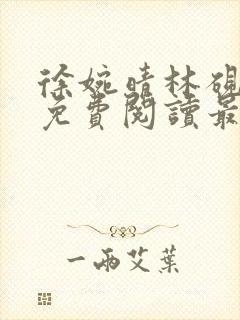 徐婉晴林硯
免費閱讀最
一兩艾葉